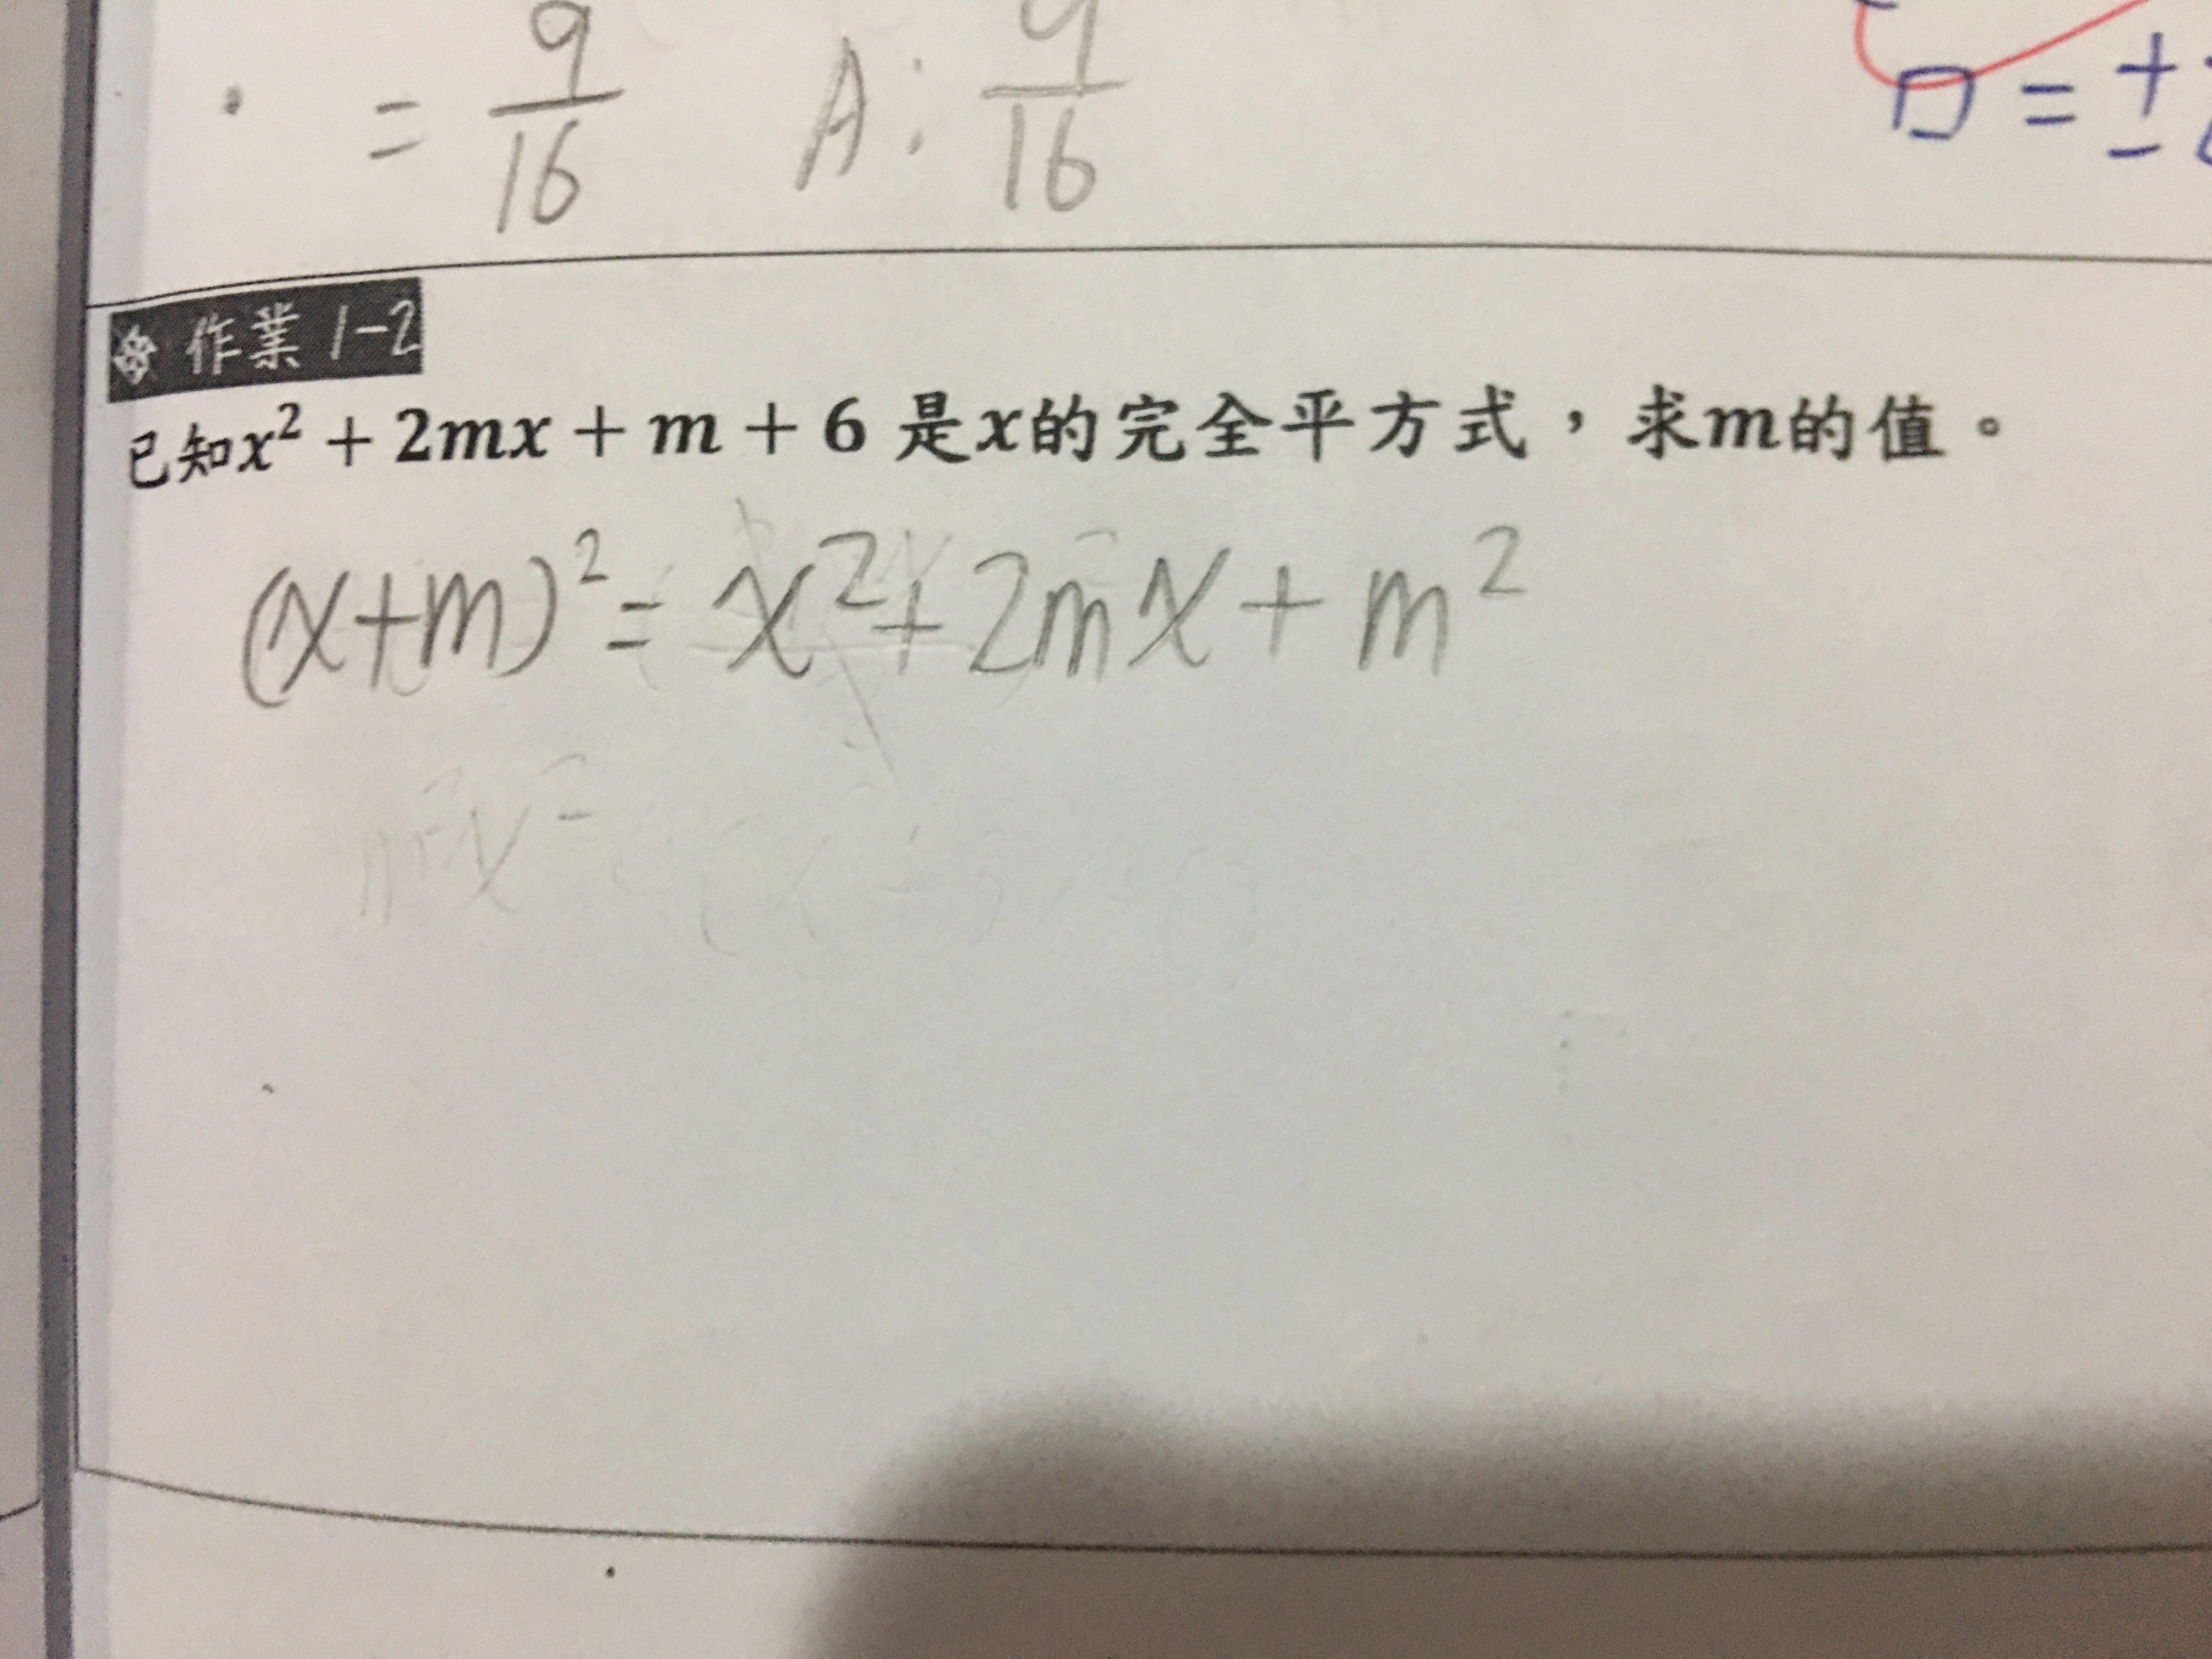 = 9/16 A: 9/16
□ = ±
作業 1-2
已知x² + 2mx + m + 6 是x的完全平方式，求m的值。
(x+m)² = x² + 2mx + m²